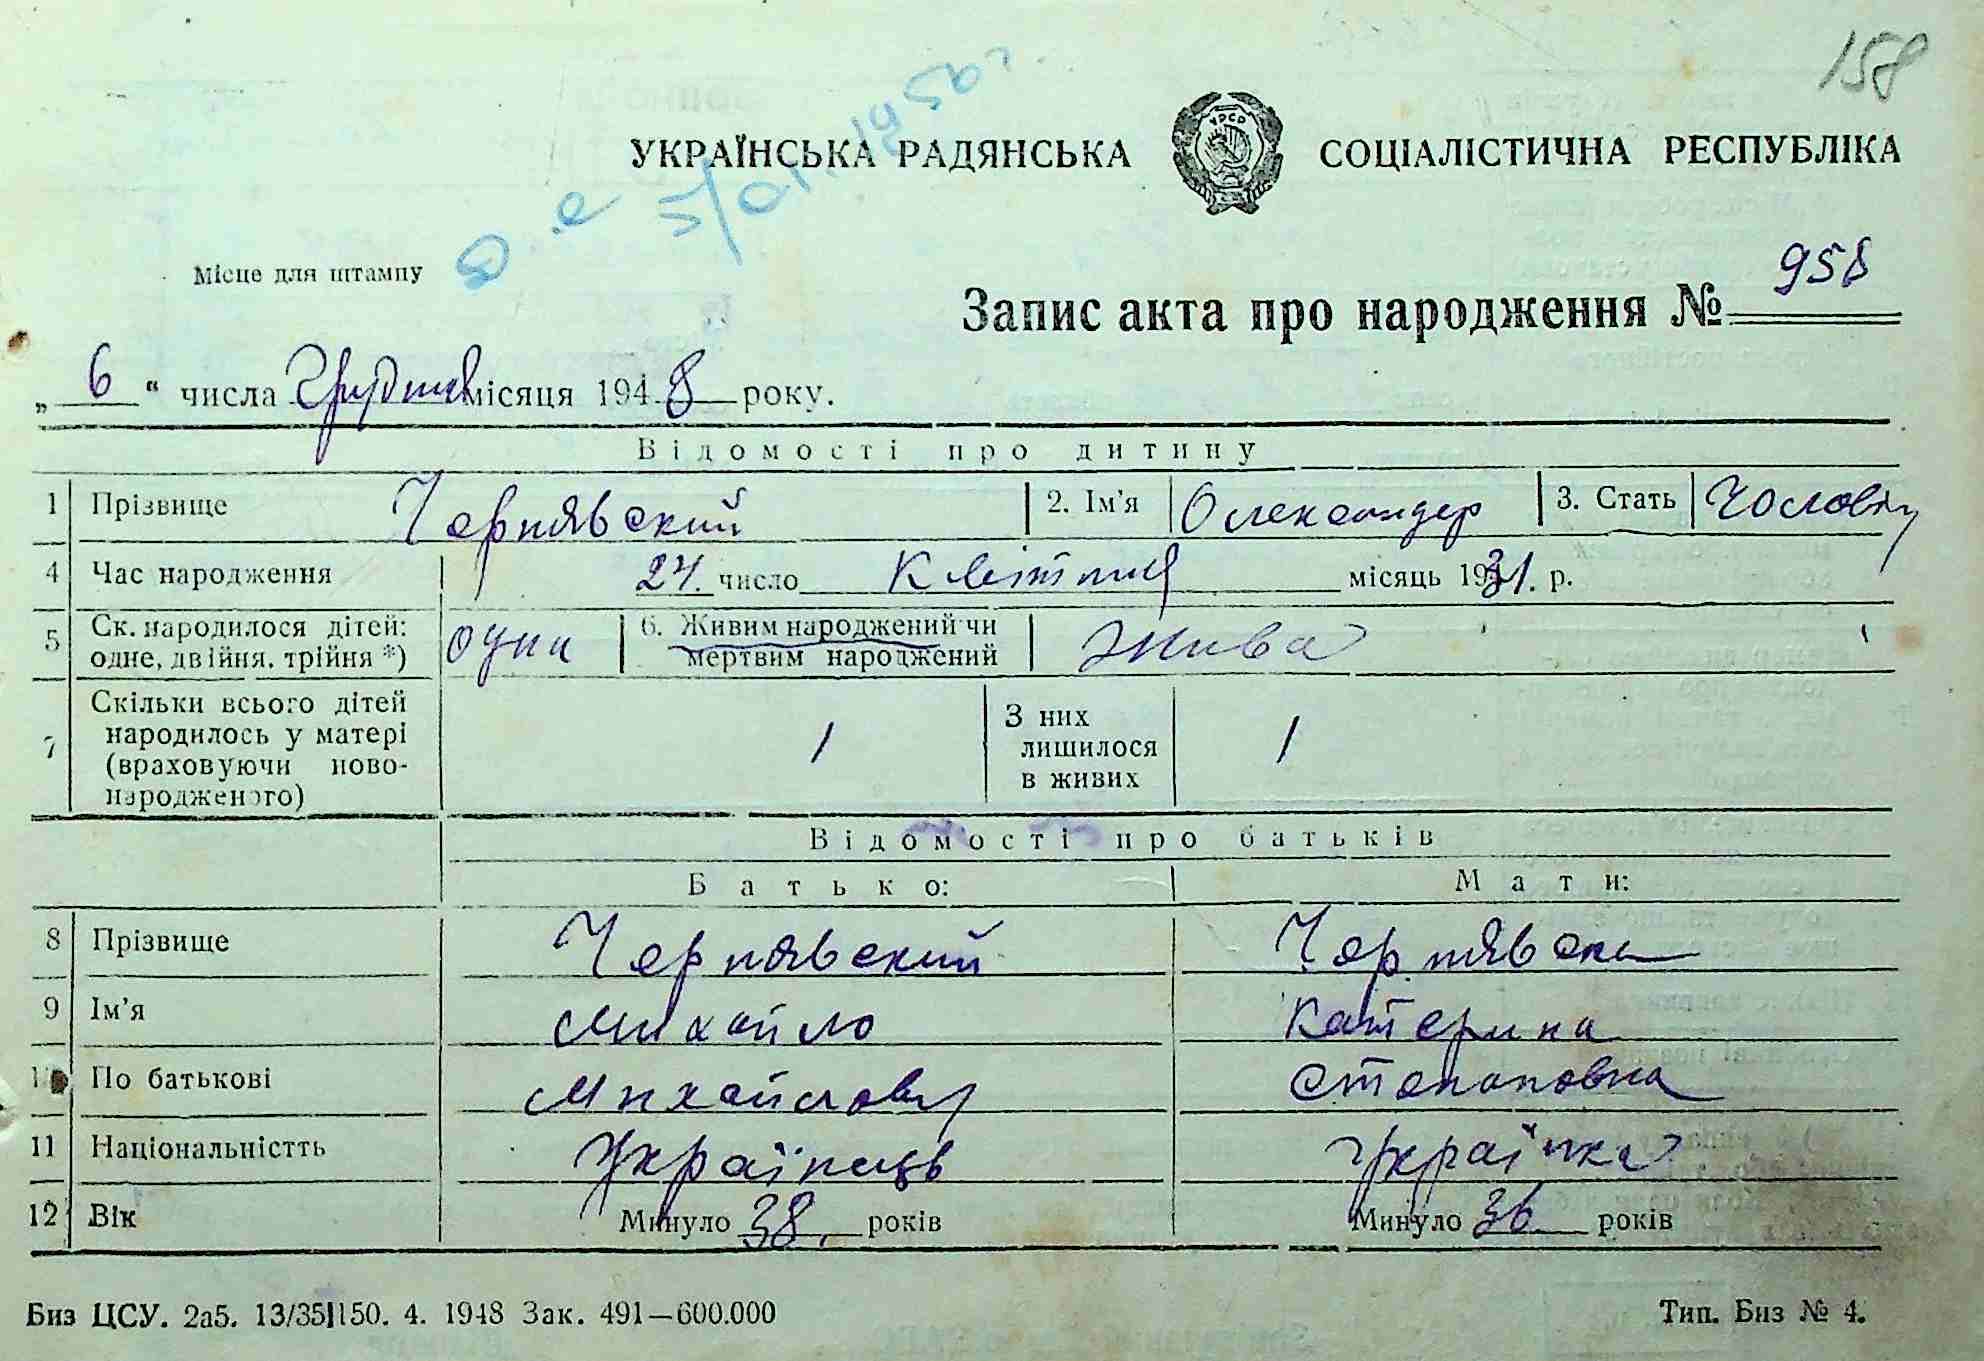 158
В. е 5/01. 1950 г.
УКРАЇНСЬКА РАДЯНСЬКА СОЦІАЛІСТИЧНА РЕСПУБЛІКА
УРСР
Місце для штампу
Запис акта про народження № 958
„ 6 “ числа Грудня місяця 1948 року.
Відомості про дитину
1 Прізвище Чернявский 2. Ім'я Олександер 3. Стать Чоловіч
4 Час народження 24. число Квітня місяць 1931. р.
5 Ск. народилося дітей: одне, двійня, трійня *) одна 6. Живим народжений чи мертвим народжений Жива
7 Скільки всього дітей народилось у матері (враховуючи новонародженого) 1 З них лишилося в живих 1
Відомості про батьків
Батько: Мати:
8 Прізвище Чернявский Чернявска
9 Ім'я Михайло Катерина
10 По батькові Михайлович Степановна
11 Національністть Українець Українка
12 Вік Минуло 38. років Минуло 36 років
Биз ЦСУ. 2а5. 13/35 150. 4. 1948 Зак. 491—600.000 Тип. Биз № 4.